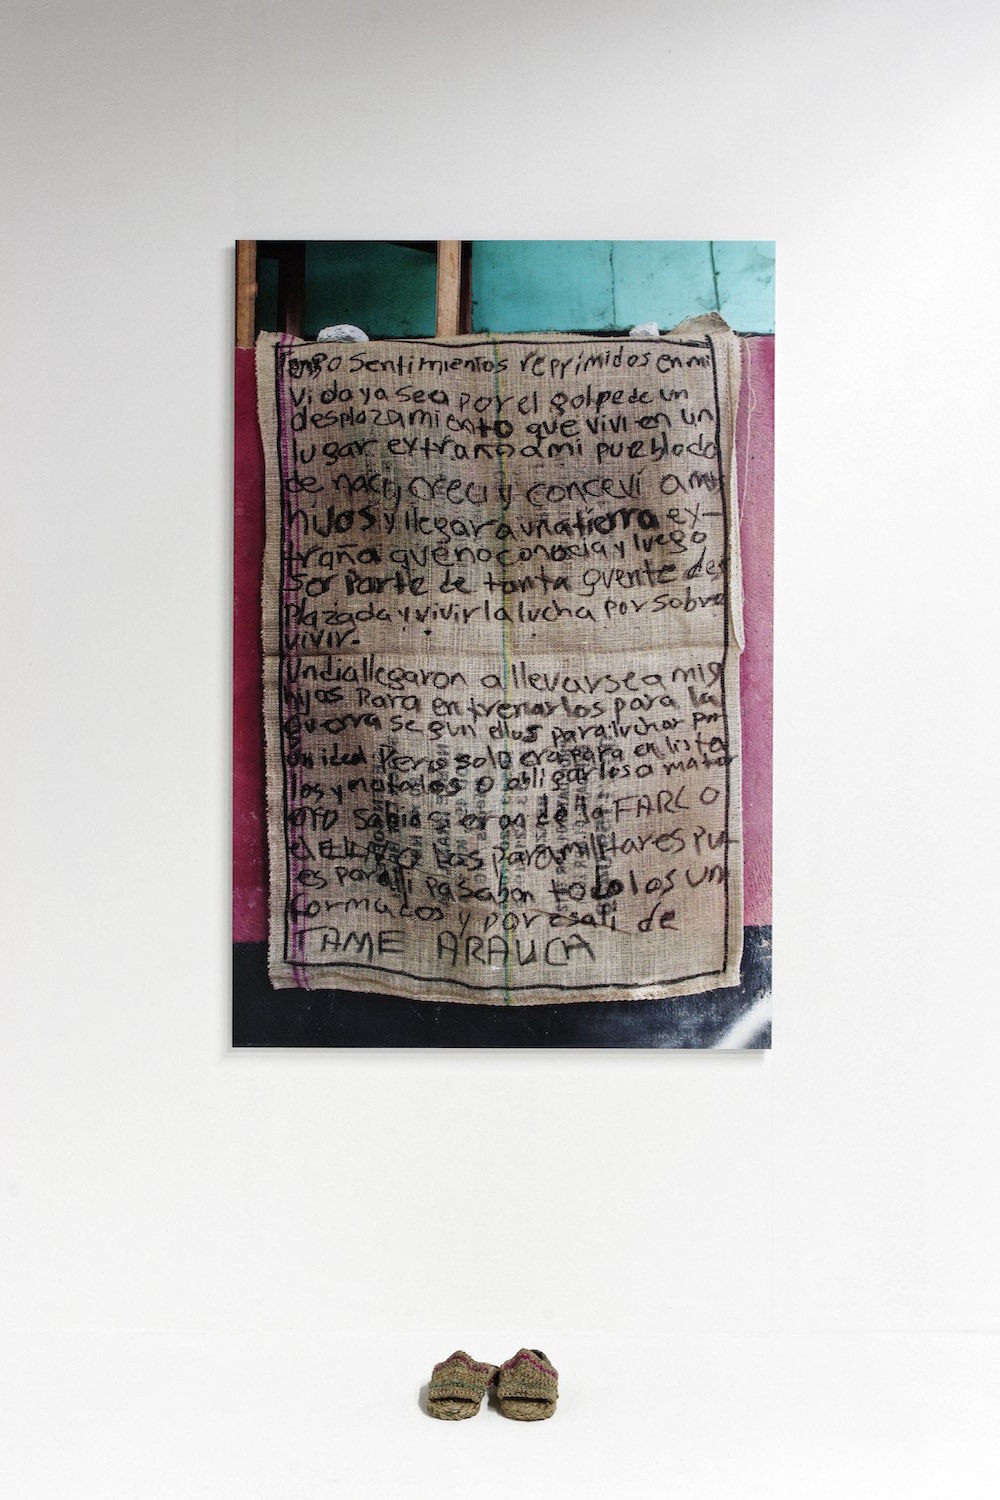 Tengo Sentimientos reprimidos en mi
vida ya sea por el golpe de un
desplazamiento que vivi en un
lugar extraño a mi pueblo do
de naci, creci y conceví a mi
hijos y llegar a una tierra ex-
traña que no conocia y luego
ser parte de tanta guente des
plazada y vivir la lucha por sobre
vivir.
Un dia llegaron a llevarse a mis
hijos Para entrenarlos para la
guerra segun ellos para luchar por
un ideal Pero solo era para en listar
los y matarlos O obligarlos a matar
no sabia si eran de la FARC O
el ELN O los paramilitares pu
es por alli pasaban todos los un
formados y por esa ti de
TAME ARAUCA